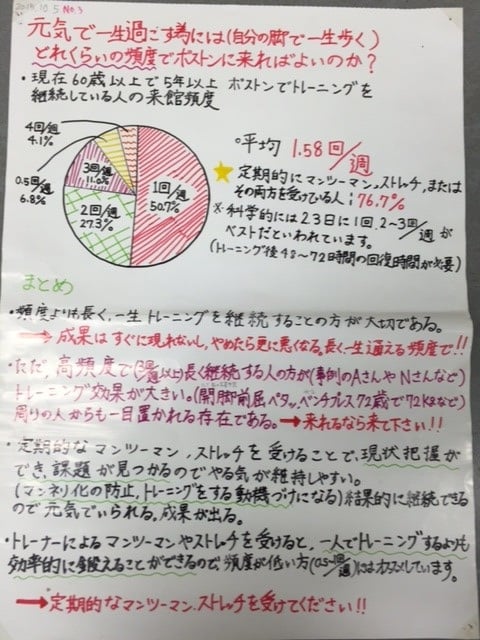 2015.10.5 No.3
元気で一生過ごす為には(自分の脚で一生歩く)
どれくらいの頻度でボストンに来ればよいのか?
・現在60歳以上で5年以上 ボストンでトレーニングを
継続している人の来館頻度
4回/週
4.1%
3回/週
11.0%
0.5回/週
6.8%
2回/週
27.3%
1回/週
50.7%
○平均 1.58回/週
定期的にマンツーマン、ストレッチ、または
その両方を受けている人:76.7%
※科学的には2.3日に1回、2~3回/週が
ベストだといわれています。
(トレーニング後48~72時間の回復時間が必要)
まとめ
・頻度よりも長く、一生トレーニングを継続することの方が大切である。
→成果はすぐに現れないし、やめたら更に悪くなる。長く、一生通える頻度で!!
・ただ、高頻度で(3回/週以上)長く継続する人の方が(事例のAさんやNさんなど)
トレーニング効果が大きい。(開脚前屈ペタッ、ベンチプレス72歳で72kgなど)
周りの人からも一目置かれる存在である。→来れるなら来て下さい!!
・定期的なマンツーマン、ストレッチを受けることで、現状把握が
でき、課題が見つかるのでやる気が維持しやすい。
(マンネリ化の防止、トレーニングをする動機づけになる)結果的に継続できる
ので元気でいられる。成果が出る。
・トレーナーによるマンツーマンやストレッチを受けると、一人でトレーニングするよりも
効率的に鍛えることができるので、頻度が低い方(0.5~1回/週)にはオススメしています。
→定期的なマンツーマン、ストレッチを受けてください!!